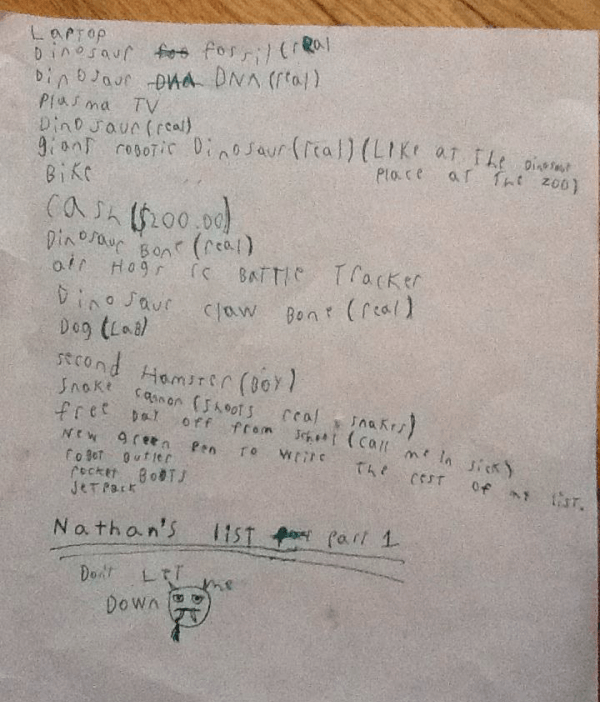 Laptop
Dinosaur fossil (real
Dinosaur DNA DNA (real)
Plasma TV
Dinosaur (real)
giant robotic Dinosaur (real) (Like at the Dinosaur
Place at the zoo)
Bike
Cash ($200.00)
Dinosaur Bone (real)
air Hogs rc Battle Tracker
Dinosaur claw Bone (real)
Dog (Lab)
second Hamster (Boy)
Snake cannon (shoots real snakes)
free Day off from school (call me in sick)
New green pen to write the rest of my list.
robot butler
rocket Boots
Jetpack
Nathan's list part 1
Don't Let me
Down